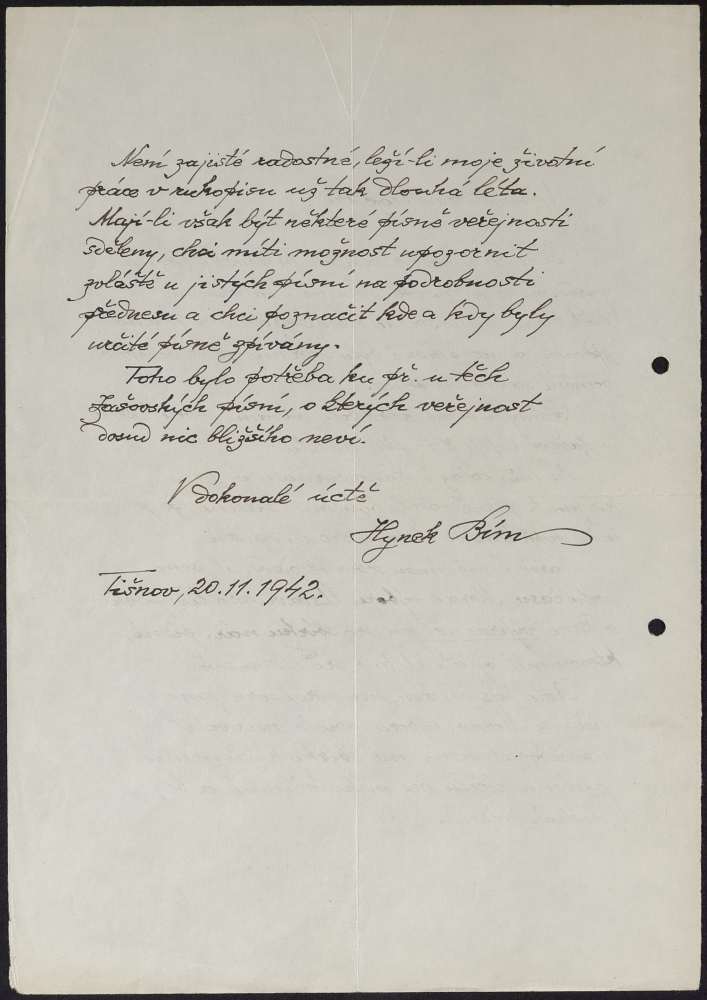 Není zajisté radostné, leží-li moje životní
práce v rukopisu už tak dlouhá léta.
Mají-li však být některé písně veřejnosti
sděleny, chci míti možnost upozornit
zvláště u jistých písní na podrobnosti
přednesu a chci poznačit kde a kdy byly
určité písně zpívány.
Toho bylo potřeba ku př. u těch
Zašovských písní, o kterých veřejnost
dosud nic bližšího neví.
V dokonalé úctě
Hynek Bím
Tišnov, 20.11.1942.